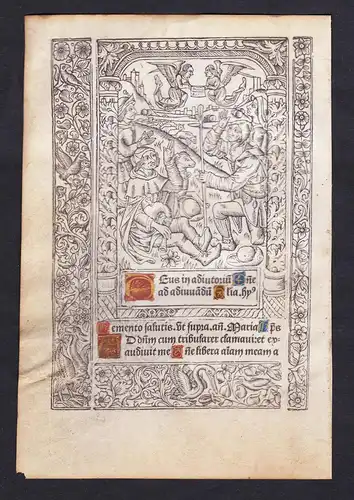 Eus in adiutoriū
ad adiuuādū
emento salutis. Vt supra. añ. Maria. ps
D dñm cum tribularer clamaui: et ex-
audiuit me ñe libera aīam meam a